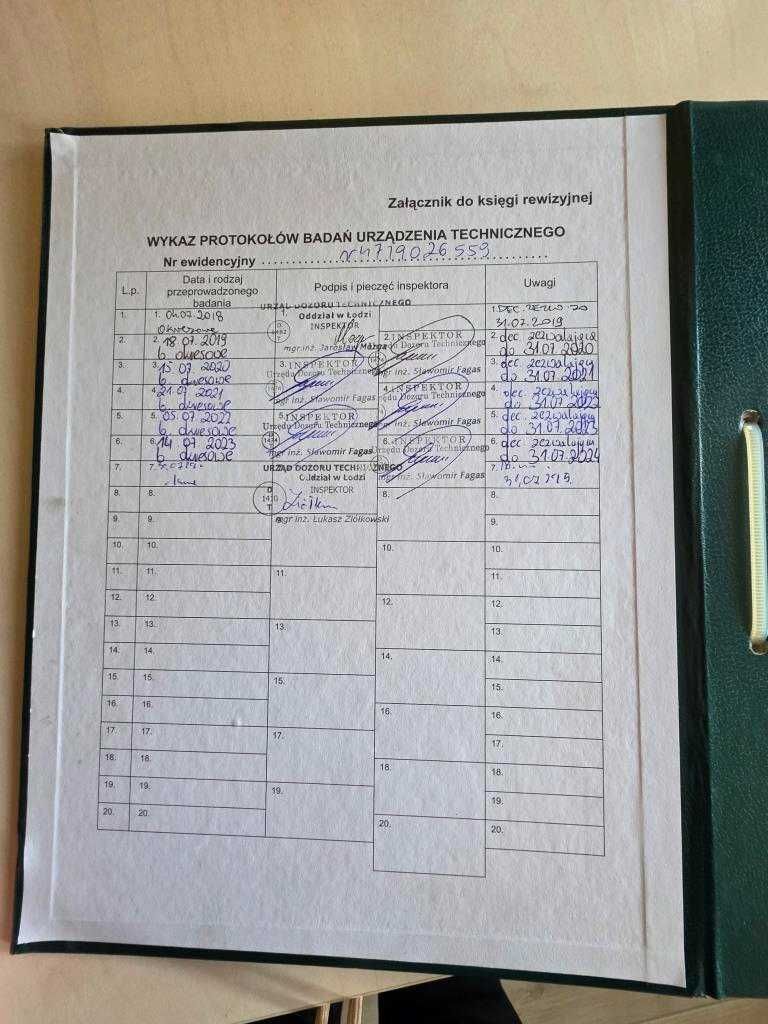 Załącznik do księgi rewizyjnej
WYKAZ PROTOKOŁÓW BADAŃ URZĄDZENIA TECHNICZNEGO
Nr ewidencyjny nr 4719026559
L.p. Data i rodzaj przeprowadzonego badania Podpis i pieczęć inspektora Uwagi
URZĄD DOZORU TECHNICZNEGO
1. 1. 04.07.2018 1. Oddział w Łodzi 1. DEC.
Okresowe INSPEKTOR 31.07.2019
mgr inż. Jarosław
2. 2. 18 07 2019 2. INSPEKTOR 2. dec zezwalająca
6 okresowe Urzędu Dozoru Technicznego do 31.07 2020
3. 3. 15 07 2020 3. INSPEKTOR 3. dec zezwalająca
6 okresowe Urzędu Dozoru Technicznego do 31.07 2021
mgr inż. Sławomir Fagas
4. 4. 21 07 2021 4. INSPEKTOR 4. dec zezwalająca
6 okresowe Urzędu Dozoru Technicznego do 31.07 2022
mgr inż. Sławomir Fagas
5. 5. 05 07 2022 5. INSPEKTOR 5. dec zezwalająca
6 okresowe Urzędu Dozoru Technicznego do 31.07 2023
mgr inż. Sławomir Fagas
6. 6. 14 07 2023 6. INSPEKTOR 6. dec zezwalająca
6 okresowe Urzędu Dozoru Technicznego do 31.07 2024
mgr inż. Sławomir Fagas
7. 7. URZĄD DOZORU TECHNICZNEGO 7.
Oddział w Łodzi
8. 8. INSPEKTOR 8. 8.
D 1410 T
9. 9. mgr inż. Łukasz Ziółkowski 9.
10. 10. 10. 10.
11. 11. 11. 11.
12. 12. 12. 12.
13. 13. 13. 13.
14. 14. 14. 14.
15. 15. 15. 15.
16. 16. 16. 16.
17. 17. 17. 17.
18. 18. 18. 18.
19. 19. 19. 19.
20. 20. 20. 20.